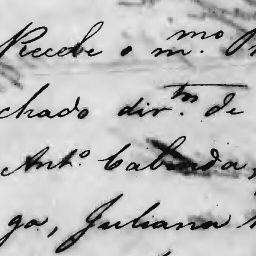 Recebe o m.mo
chado dir.tos de
Ant.o Cabinda,
ga, Juliana